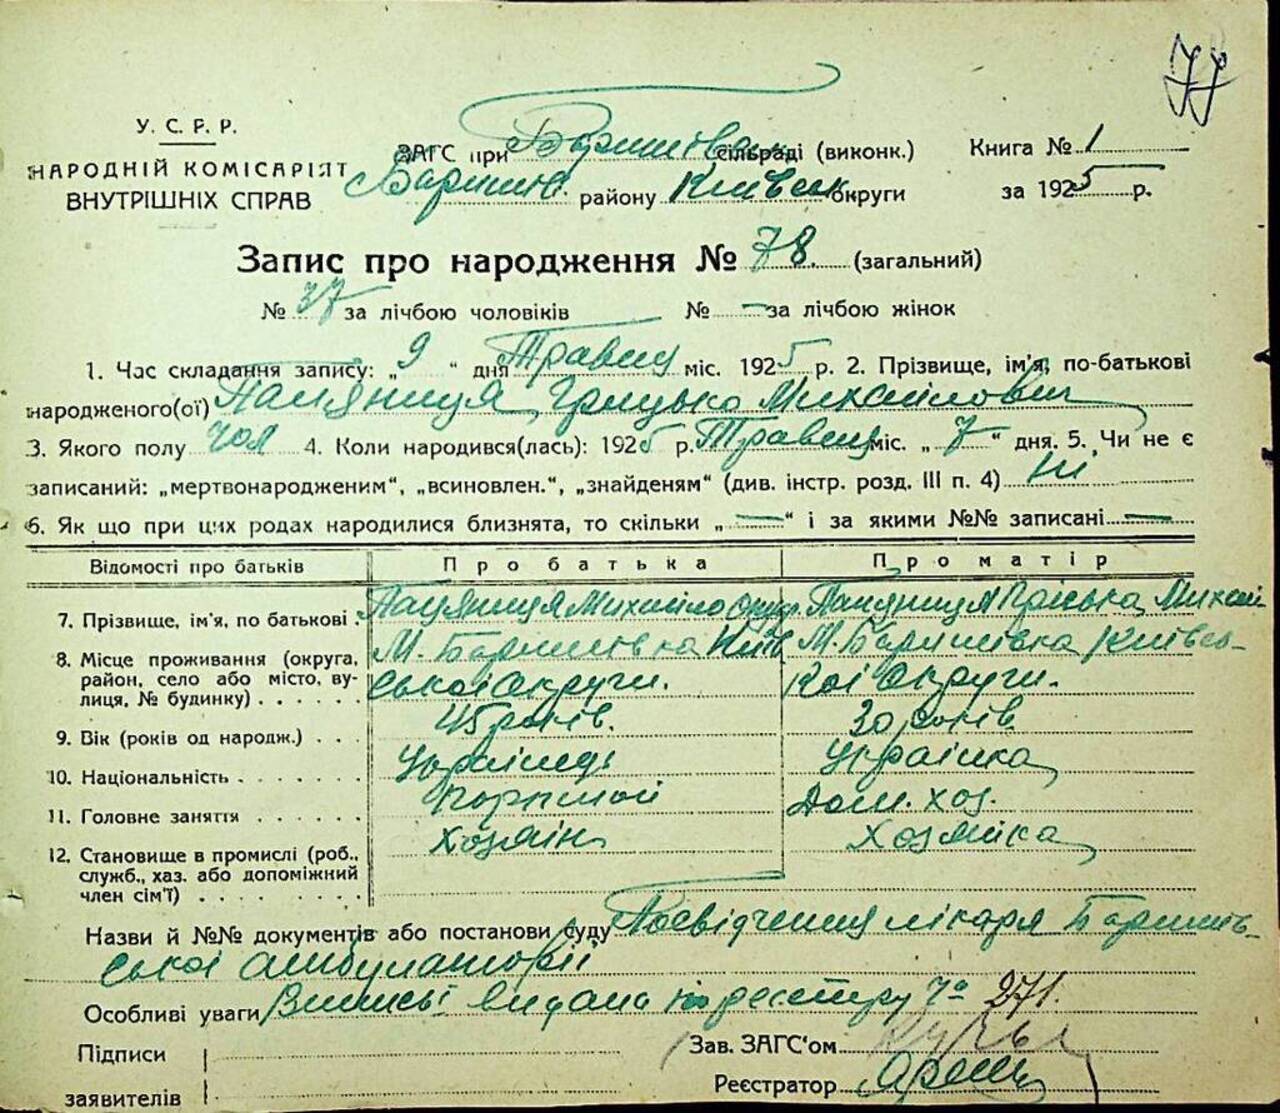 77
У. С. Р. Р.
НАРОДНІЙ КОМІСАРІЯТ
ВНУТРІШНІХ СПРАВ
ЗАГС при Баришівськ сільраді (виконк.)
Баришів. району Київськ округи
Книга № 1
за 1925 р.
Запис про народження № 78. (загальний)
№ 37 за лічбою чоловіків № — за лічбою жінок
1. Час складання запису: „ 9 “ дня Травня міс. 1925 р. 2. Прізвище, ім'я, по-батькові
народженого(ої) Грицько Михайлович
3. Якого полу чол 4. Коли народився(лась): 1925 р. Травня міс. „ 7 “ дня. 5. Чи не є
записаний: „мертвонародженим“, „всиновлен.“, „знайденям“ (див. інстр. розд. III п. 4) Ні
6. Як що при цих родах народилися близнята, то скільки „ — “ і за якими №№ записані —
Відомості про батьків Про батька Про матір
7. Прізвище, ім'я, по батькові . Михайло Михай
8. Місце проживання (округа, район, село або місто, вулиця, № будинку) . . . . . .
М. Баришівка Київ М. Баришівка Київсь-
ської Округи. кої Округи.
9. Вік (років од народж.) . . . 45 років. 30 років.
10. Національність . . . . . . . Українець Українка
11. Головне заняття . . . . . . Дом. хоз.
12. Становище в промислі (роб., служб., хаз. або допоміжний член сім'ї) . . . . . . . . Хозяін Хозяйка
Назви й №№ документів або постанови суду Посвідчення лікаря Баришів-
ської амбулаторії
Особливі уваги Виписі видана по реєстру № 271.
Підписи
заявителів
Зав. ЗАГС'ом
Реєстратор